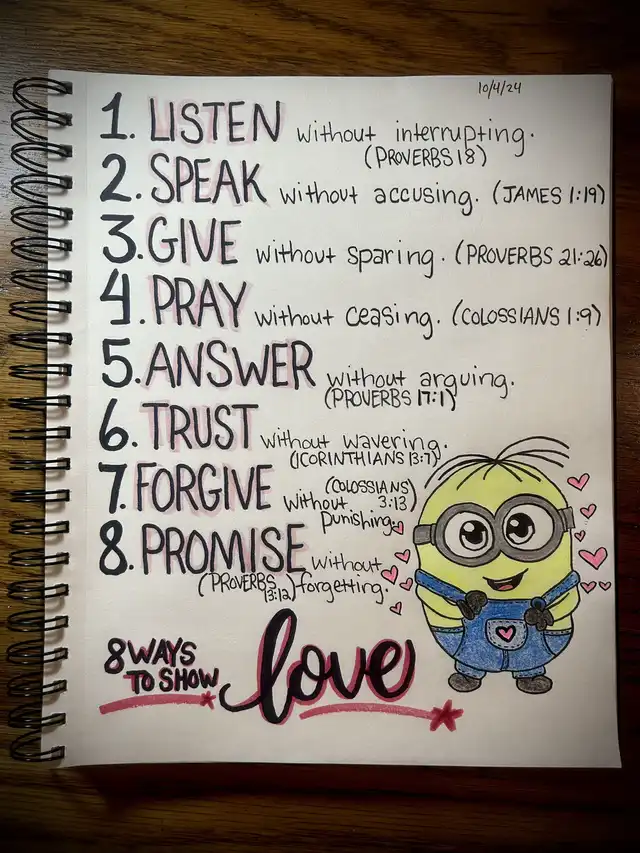 10/4/24
1. LISTEN without interrupting.
(PROVERBS 18)
2. SPEAK without accusing. (JAMES 1:19)
3. GIVE without sparing. (PROVERBS 21:26)
4. PRAY without ceasing. (COLOSSIANS 1:9)
5. ANSWER without arguing.
(PROVERBS 17:1)
6. TRUST without wavering.
(1CORINTHIANS 13:7)
7. FORGIVE without punishing.
(COLOSSIANS 3:13)
8. PROMISE without forgetting.
(PROVERBS 13:12)
8 WAYS
TO SHOW love